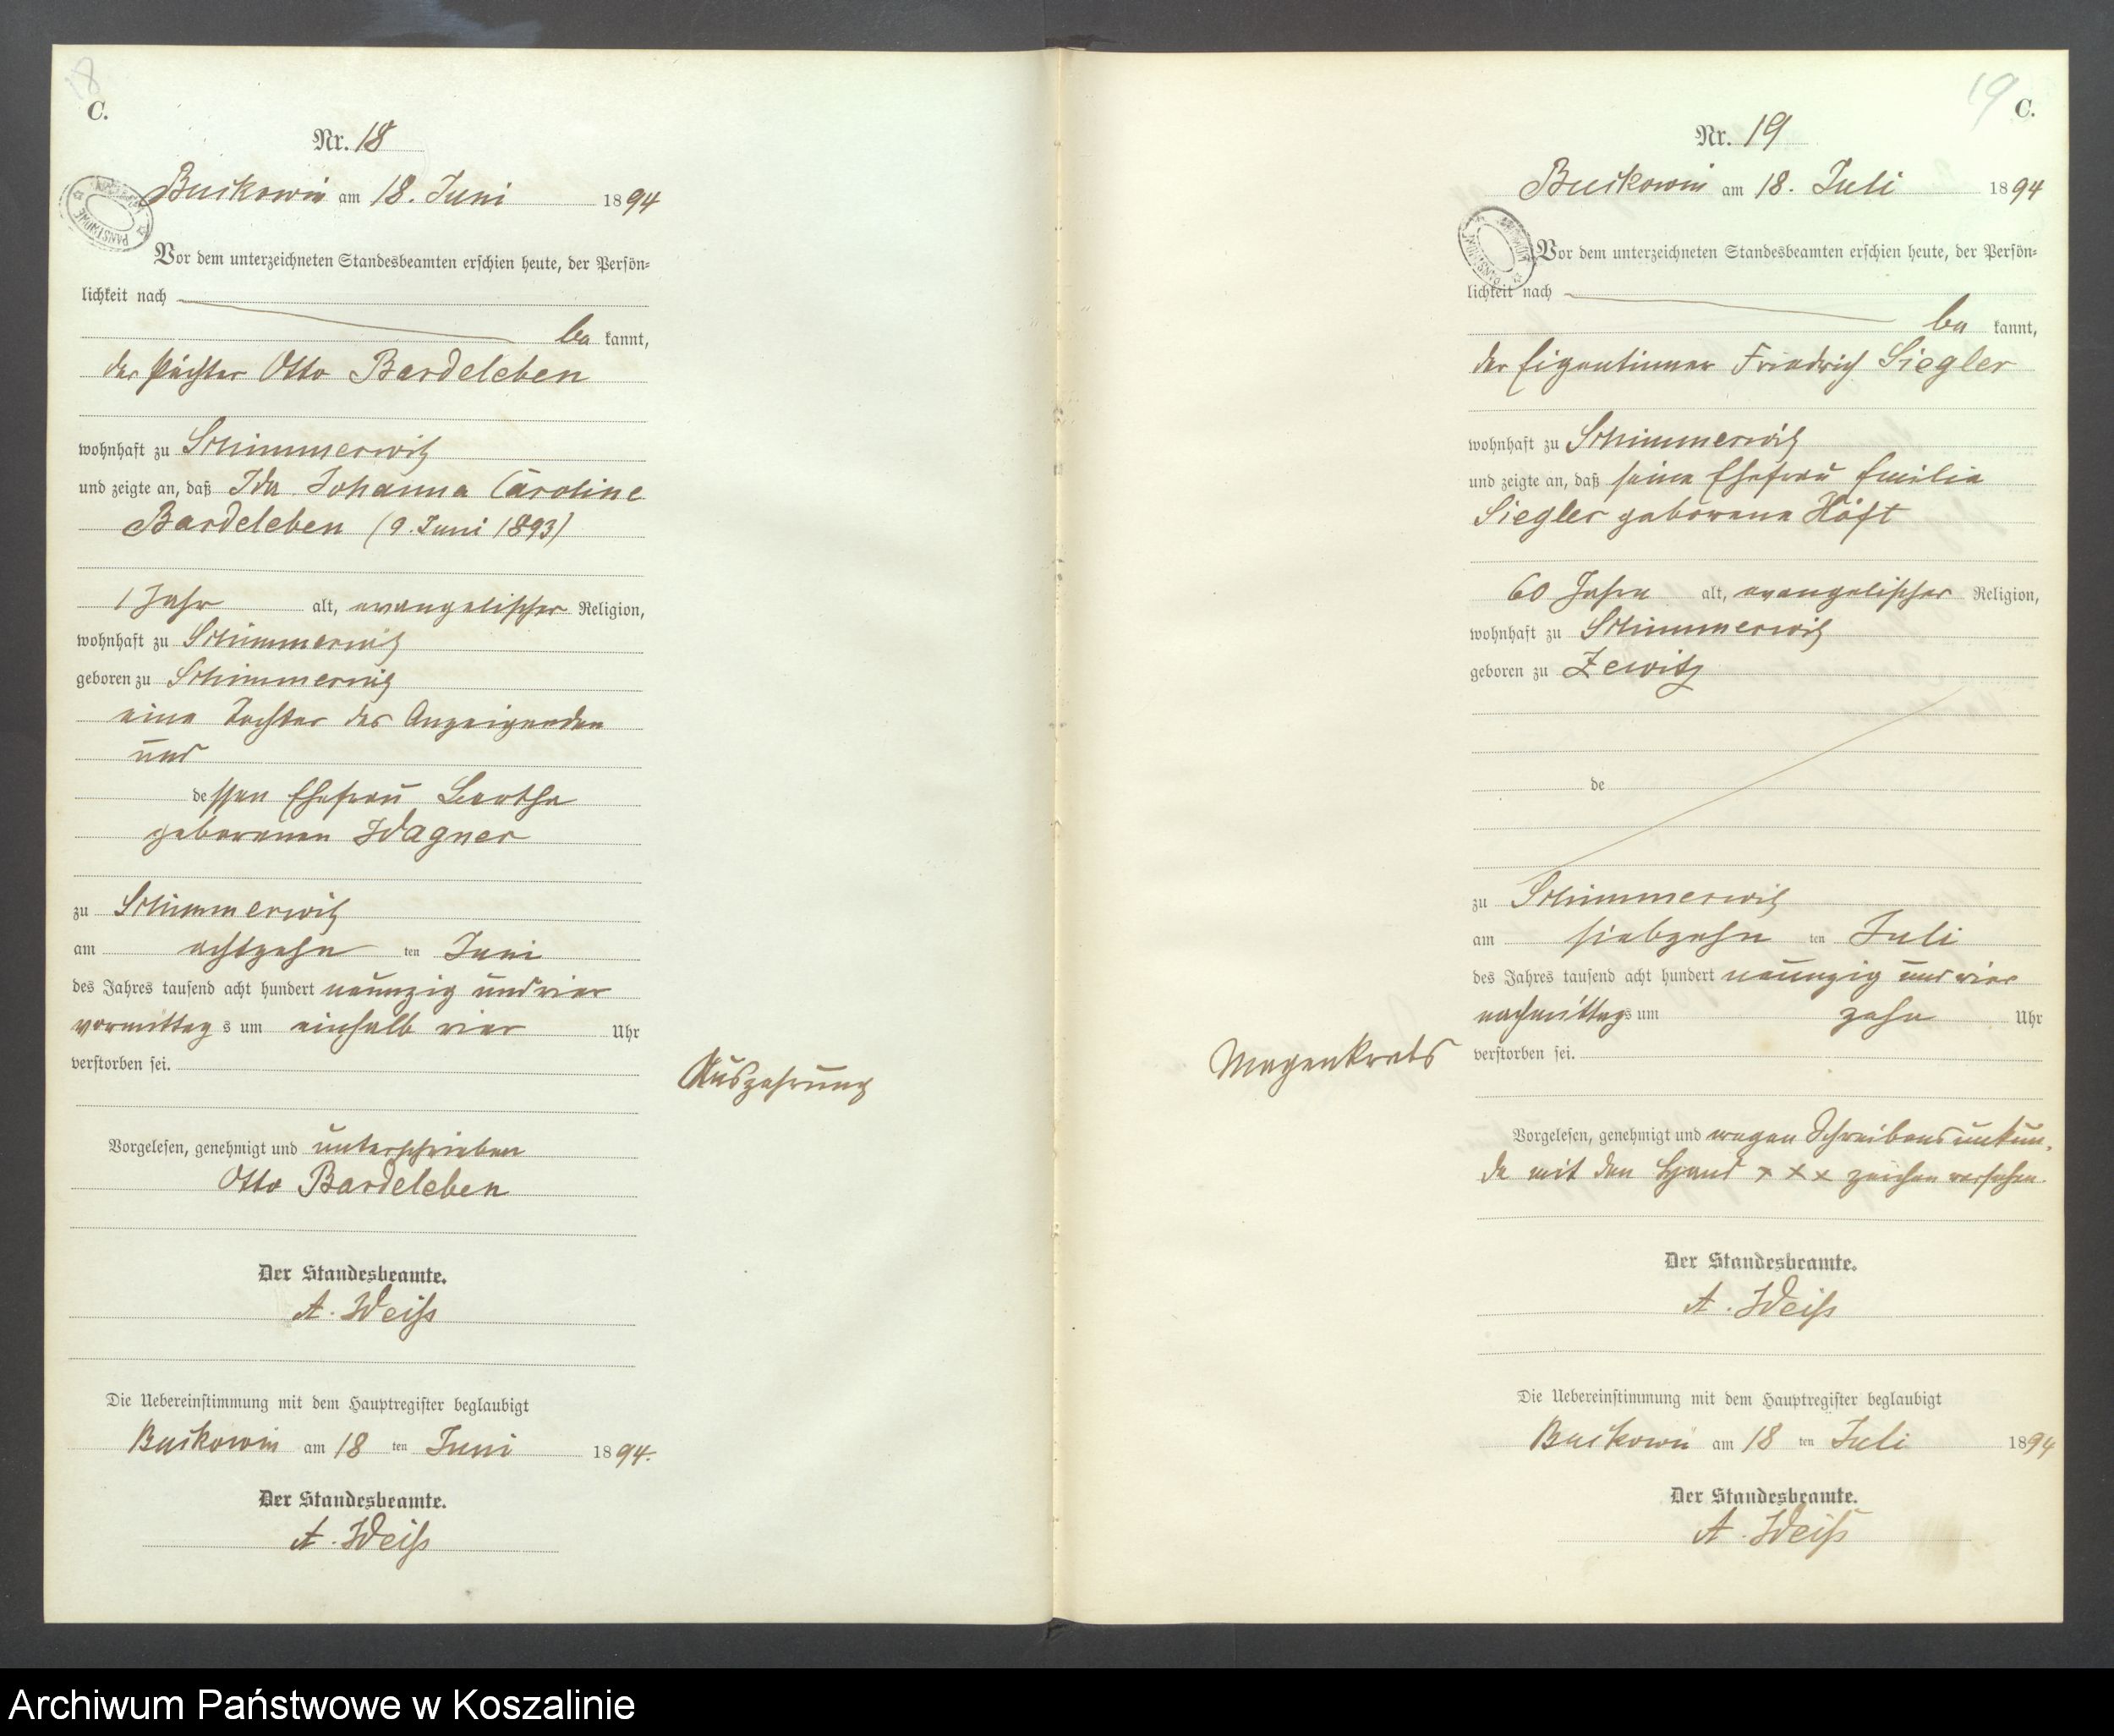 18
C.
Nr. 18
Buckowin am 18. Juni 1894
Vor dem unterzeichneten Standesbeamten erschien heute, der Persön-
lichkeit nach
be kannt,
der Pächter Otto Bardeleben
wohnhaft zu Schimmerwitz
und zeigte an, daß Ida Johanna Caroline
Bardeleben (9. Juni 1893)
1 Jahr alt, evangelischer Religion,
wohnhaft zu Schimmerwitz
geboren zu Schimmerwitz
eine Tochter des Anzeigenden
und
dessen Ehefrau Bertha
geborenen Wagner
zu Schimmerwitz
am achtzehn ten Juni
des Jahres tausend acht hundert neunzig und vier
vormittags um einhalb vier Uhr
verstorben sei.
Auszehrung
Vorgelesen, genehmigt und unterschrieben
Otto Bardeleben
Der Standesbeamte.
A. Weiß
Die Uebereinstimmung mit dem Hauptregister beglaubigt
Buckowin am 18 ten Juni 1894.
Der Standesbeamte.
A. Weiß
19
C.
Nr. 19
Buckowin am 18. Juli 1894
Vor dem unterzeichneten Standesbeamten erschien heute, der Persön-
lichkeit nach
be kannt,
der Eigentümer Friedrich Siegler
wohnhaft zu Schimmerwitz
und zeigte an, daß seine Ehefrau Emilie
Siegler geborene Höft
60 Jahre alt, evangelischer Religion,
wohnhaft zu Schimmerwitz
geboren zu Zewitz
de
zu Schimmerwitz
am siebzehn ten Juli
des Jahres tausend acht hundert neunzig und vier
nachmittags um zehn Uhr
verstorben sei.
Magenkrebs
Vorgelesen, genehmigt und wegen Schreibensunkun-
de mit den Hand x x x zeichen versehen.
Der Standesbeamte.
A. Weiß
Die Uebereinstimmung mit dem Hauptregister beglaubigt
Buckowin am 18 ten Juli 1894
Der Standesbeamte.
A. Weiß
Archiwum Państwowe w Koszalinie